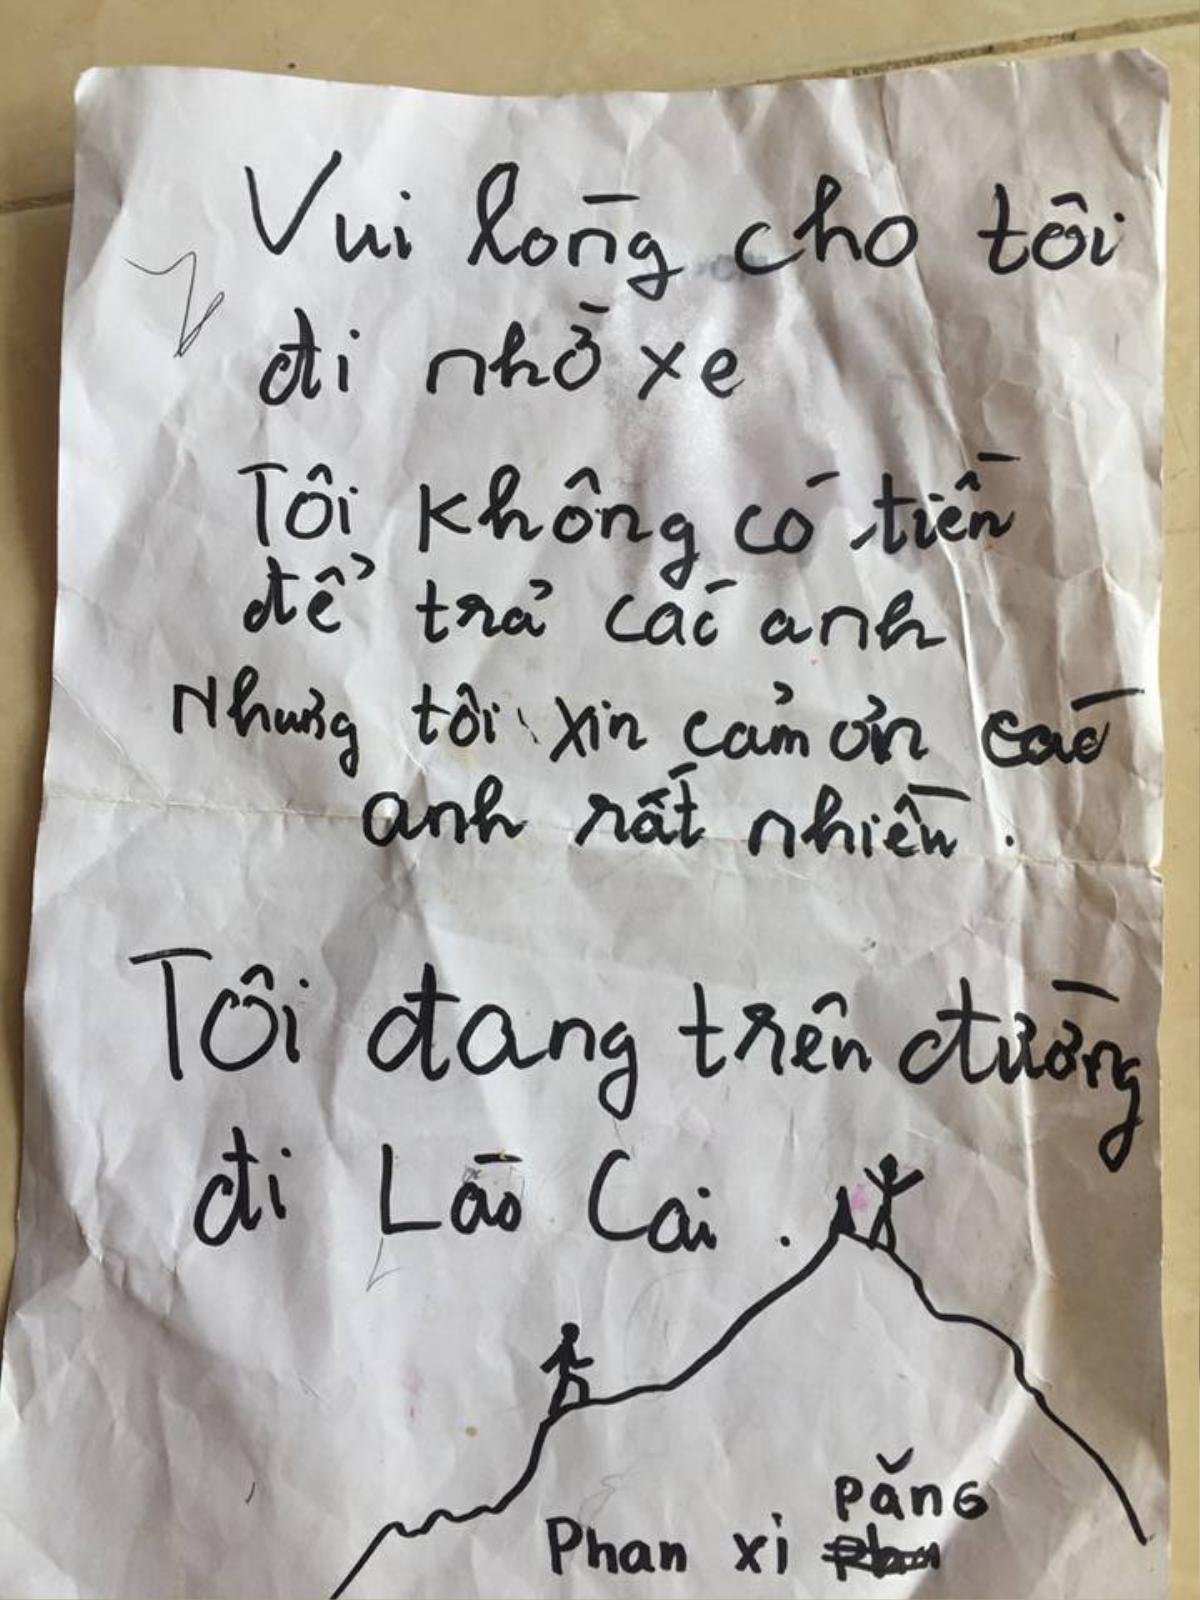 Vui lòng cho tôi
đi nhờ xe
Tôi không có tiền
để trả các anh
Nhưng tôi xin cảm ơn các
anh rất nhiều.
Tôi đang trên đường
đi Lào Cai.
Phan xi păng